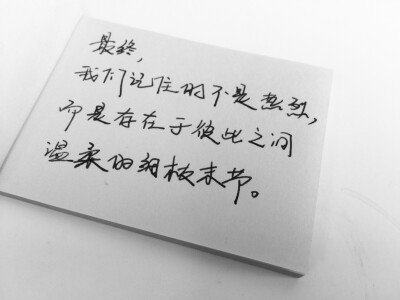 最终,
我们记住的不是热烈,
而是存在于彼此之间
温柔的细枝末节。